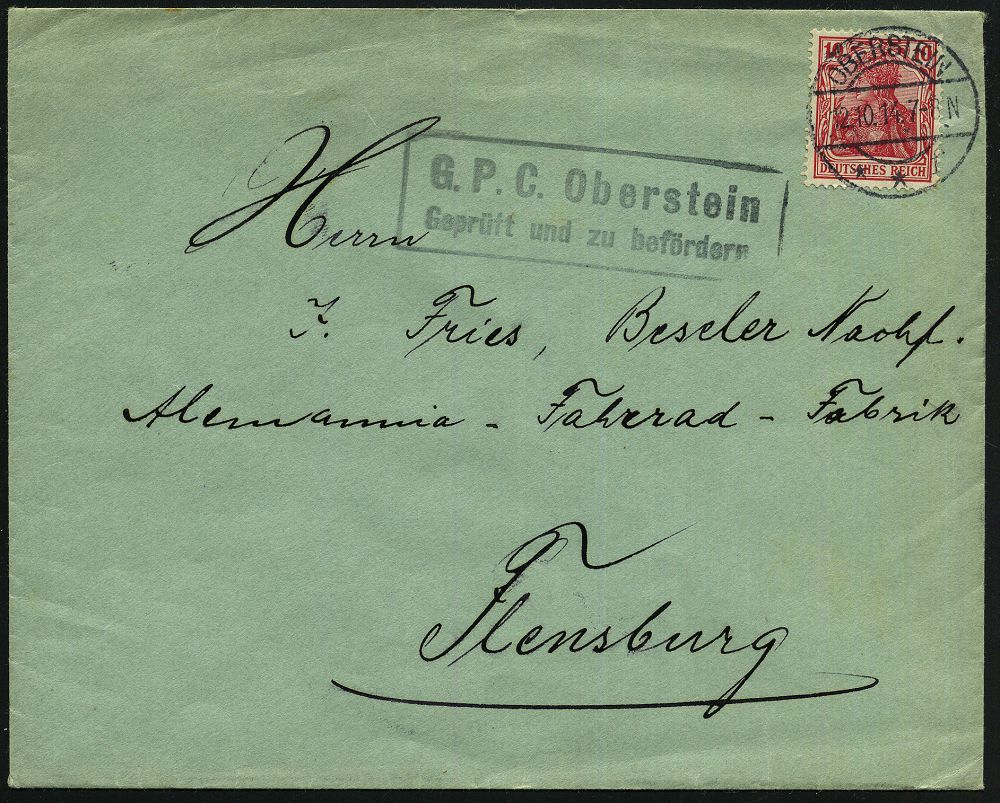 10 10
DEUTSCHES REICH
OBERSTEIN
12.10.14.7-8 N
* *
G. P. C. Oberstein
Geprüft und zu befördern
Herrn
J. Fries, Beseler Nachf.
Alemannia - Fahrrad - Fabrik
Flensburg